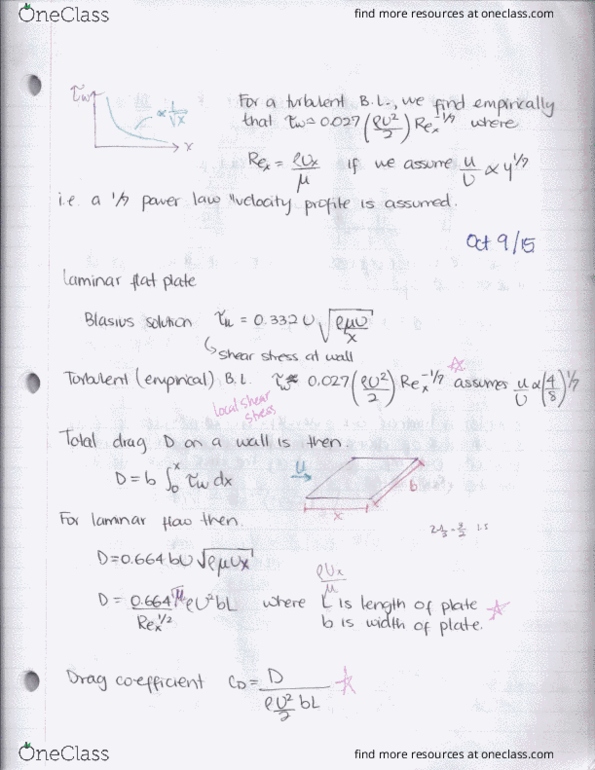 OneClass
find more resources at oneclass.com
τw
∝ 1/√x
x
For a turbulent B.L., we find empirically
that τw ≈ 0.027 (ρU²/2) Reₓ^-1/7 where
Reₓ = ρUx/μ if we assume u/U ∝ y^1/7
i.e. a 1/7 power law velocity profile is assumed.
Oct 9/15
Laminar flat plate
Blasius solution τw = 0.332 U √(ρμU/x)
shear stress at wall
Turbulent (empirical) B.L. τw ≈ 0.027 (ρU²/2) Reₓ^-1/7 assumes u/U ∝ (y/δ)^1/7
local shear
stress
Total drag D on a wall is then.
D = b ∫₀ˣ τw dx
U
b
x
For laminar flow then.
D = 0.664 bU √ρμUx
ρUx/μ
D = 0.664/Reₓ^1/2 ρU²bL where L is length of plate
b is width of plate.
Drag coefficient CD = D/(ρU²/2 bL)
OneClass
find more resources at oneclass.com